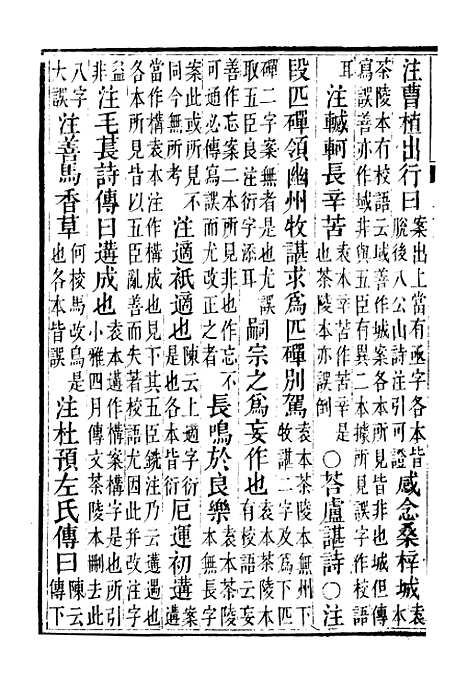 注曹植出行曰案出上當有亟字各本皆脫後八公山詩注引可證感念桑梓城袁本
茶陵本有校語云域善作城案各本所見皆非也城但傳寫誤善亦作域非與五臣有異二本據所見誤字作校語
耳注轗軻長辛苦袁本辛苦作苦辛是也茶陵本亦誤倒○荅盧諶詩○注
段匹磾領幽州牧諶求爲匹磾別駕袁本茶陵本無州下牧諶二字及爲下匹
磾二字案無者是也尤誤取五臣良注衍字添耳嗣宗之爲妄作也袁本茶陵本有校語云妄
善作忘案二本所見非也作忘不可通必傳寫誤而尤改正之者長鳴於良樂袁本茶陵本無長字
案此或所見不同今無所考注適祇適也陳云上適字衍是也各本皆衍厄運初遘案遘
當作構袁本注遘成也見下其五臣銑注乃云遘遇也各本所見皆以五臣亂善而失著校語尤因此并改注字
益非注毛萇詩傳曰遘成也袁本遘作構案構字是也所引小雅四月傳文茶陵本刪去此
八字大誤注善馬香草何校馬改鳥是也各本皆誤注杜預左氏傳曰陳云傳下